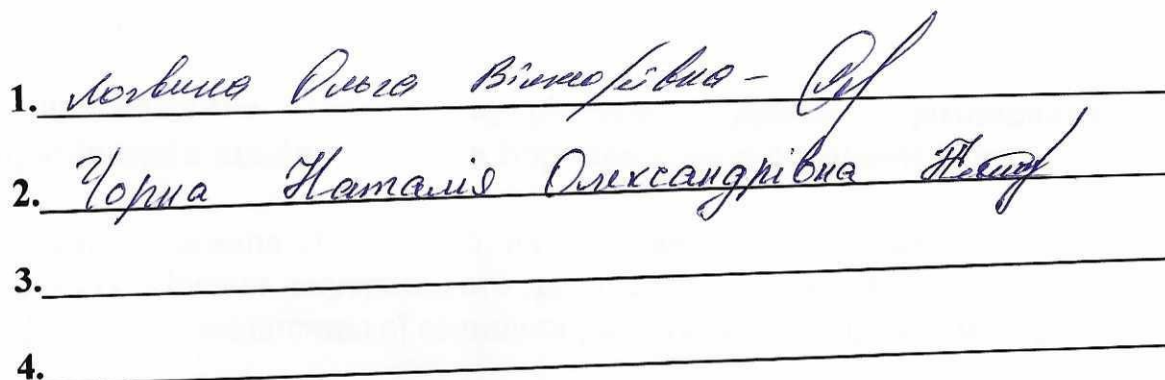 1. Логвина Ольга Вікторівна -
2. Чорна Наталія Олександрівна
3.
4.